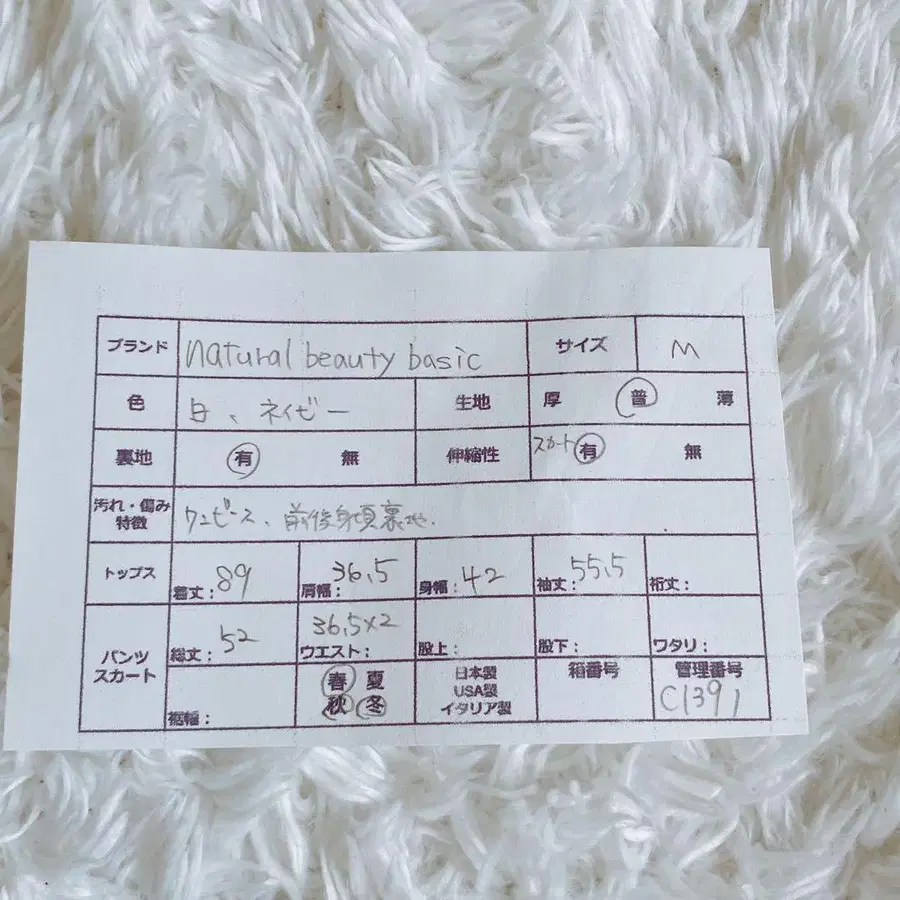 ブランド natural beauty basic サイズ M
色 白、ネイビー 生地 厚 普 薄
裏地 有 無 伸縮性 スカート 有 無
汚れ・傷み
特徴 ワンピース、前後身頃裏地.
トップス 着丈:89 肩幅:36.5 身幅:42 袖丈:55.5 裄丈:
パンツ
スカート 総丈:52 ウエスト:36.5×2 股上: 股下: ワタリ:
裾幅: 春 夏
秋 冬 日本製
USA製
イタリア製 箱番号 管理番号
C1391